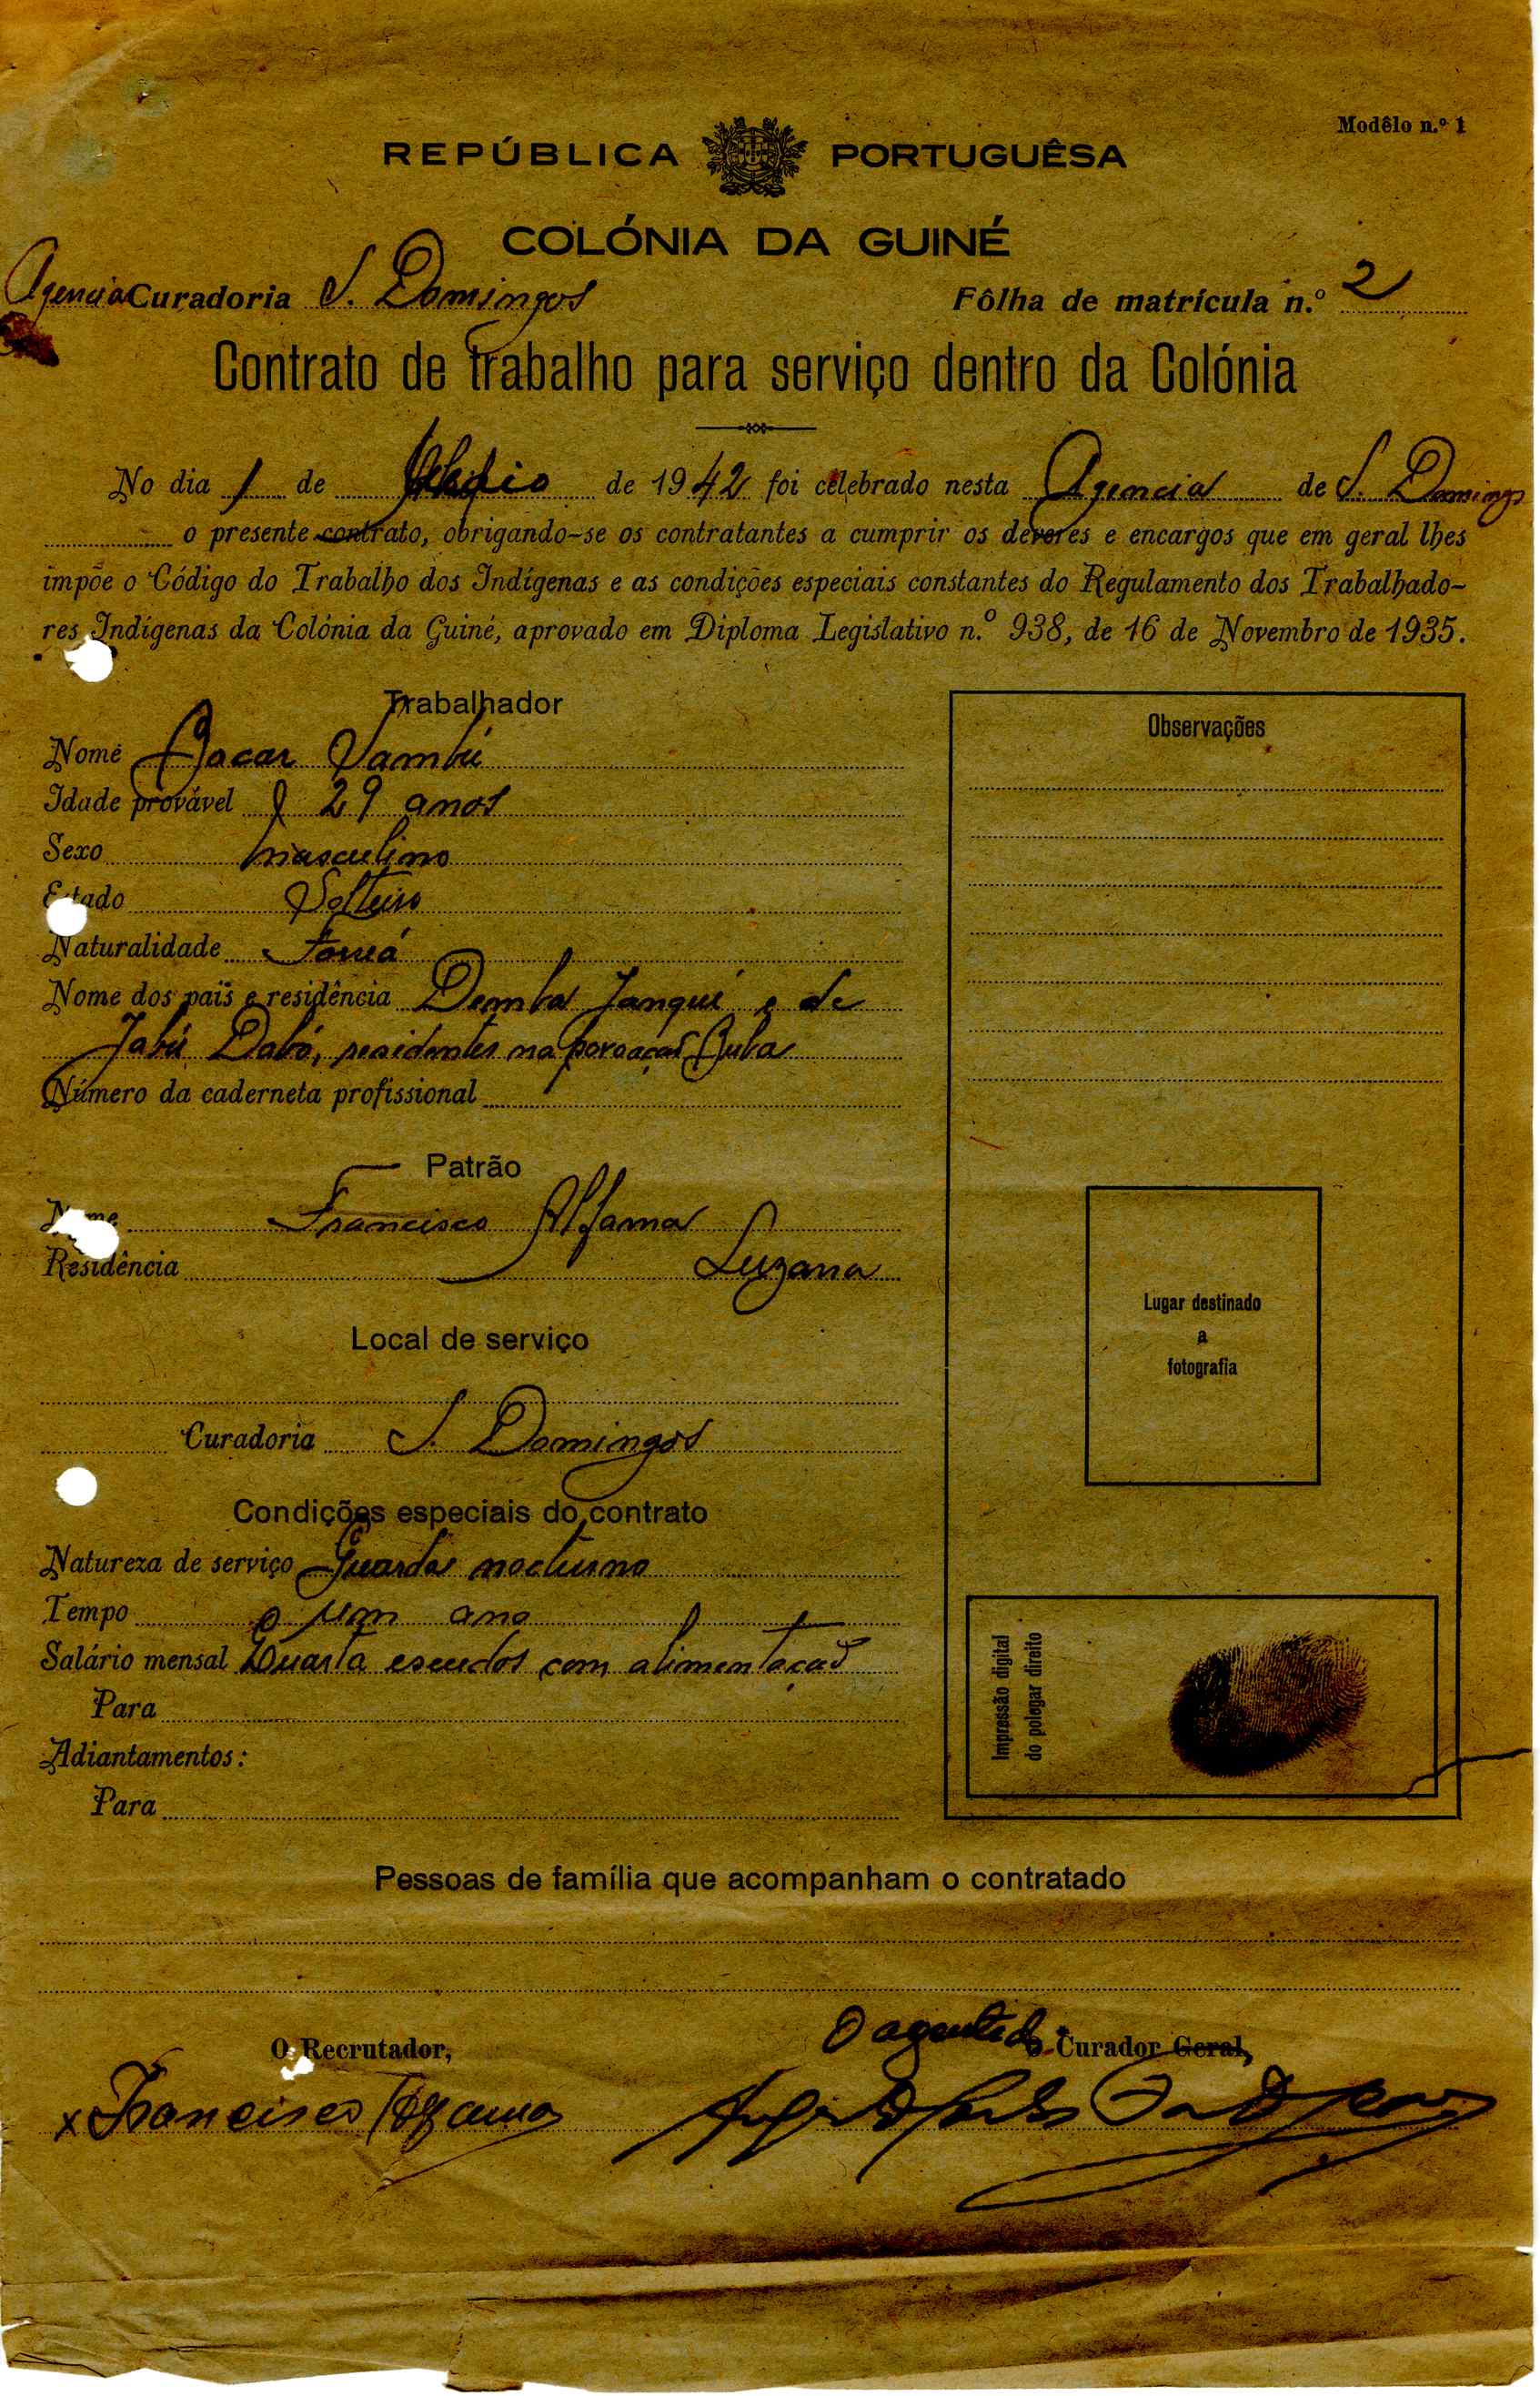 Modêlo n.º 1
REPÚBLICA PORTUGUÊSA
COLÓNIA DA GUINÉ
Agencia Curadoria S. Domingos Fôlha de matrícula n.º 2
Contrato de trabalho para serviço dentro da Colónia
No dia 1 de de 1942 foi celebrado nesta Agencia de S. Domingos
o presente contrato, obrigando-se os contratantes a cumprir os deveres e encargos que em geral lhes
impõe o Código do Trabalho dos Indígenas e as condições especiais constantes do Regulamento dos Trabalhado-
res Indígenas da Colónia da Guiné, aprovado em Diploma Legislativo n.º 938, de 16 de Novembro de 1935.
Trabalhador
Nome Bacar Sambú
Idade provável 29 anos
Sexo masculino
Estado Solteiro
Naturalidade Forreá
Nome dos pais e residência Demba Janqui e de
Jabú Dabó, residentes na povoação Buba
Número da caderneta profissional
Patrão
Nome Francisco Alfama
Residência Luzana
Local de serviço
Curadoria S. Domingos
Condições especiais do contrato
Natureza de serviço Guarda nocturno
Tempo um ano
Salário mensal escudos com alimentação
Para
Adiantamentos:
Para
Observações
Lugar destinado
a
fotografia
Impressão digital
do polegar direito
Pessoas de família que acompanham o contratado
O Recrutador,
O agente do Curador Geral,
x Francisco Alfama